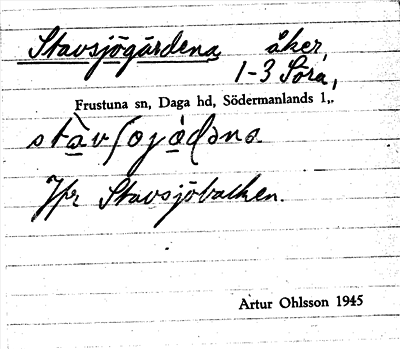 Stavsjögärdena åker,
1-3 Söra,
Frustuna sn, Daga hd, Södermanlands l,.
Jfr Stavsjöbacken.
Artur Ohlsson 1945